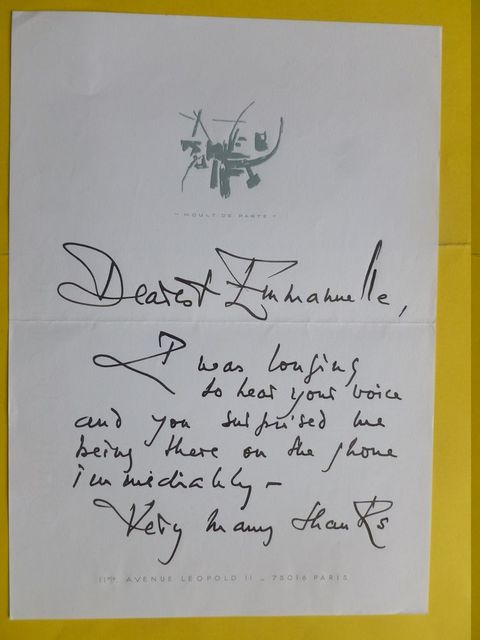 " MOULT DE PARTE "
Dearest Emmanuelle,
I was longing
to hear your voice
and you surprised me
being there on the phone
immediately –
Very many thanks
11BIS, AVENUE LEOPOLD II _ 75016 PARIS